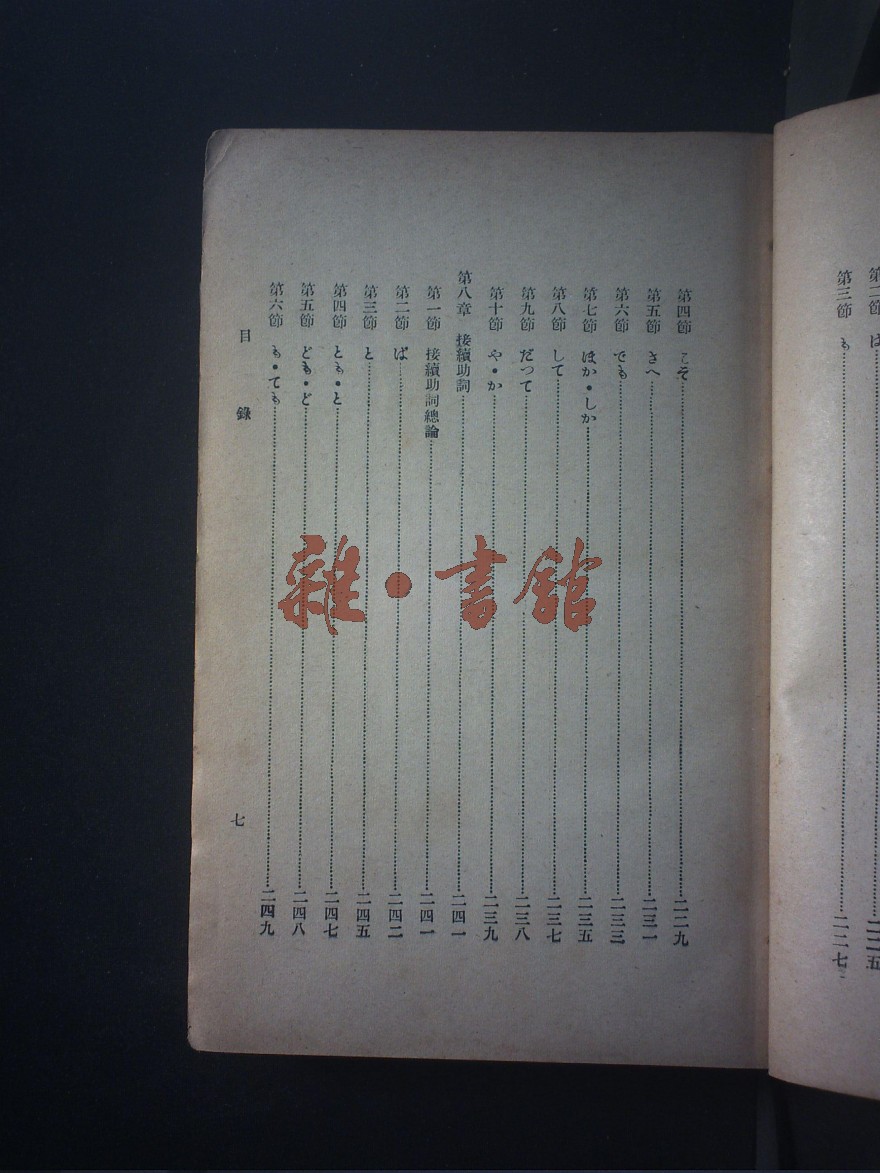 第二節 は……二二五
第三節 も……二二七
第四節 こそ……二二九
第五節 さへ……二三一
第六節 でも……二三三
第七節 ほか・しか……二三五
第八節 して……二三七
第九節 だつて……二三八
第十節 や・か……二三九
第八章 接續助詞……二四一
第一節 接續助詞總論……二四一
第二節 ば……二四二
第三節 と……二四五
第四節 とも・と……二四七
第五節 ども・ど……二四八
第六節 も・ても……二四九
目錄
七
雜・書館